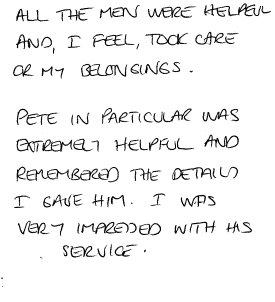 ALL THE MEN WERE HELPFUL
AND, I FEEL, TOOK CARE
OR MY BELONGINGS.
PETE IN PARTICULAR WAS
EXTREMELY HELPFUL AND
REMEMBERED THE DETAILS
I GAVE HIM. I WAS
VERY IMPRESSED WITH HIS
SERVICE.